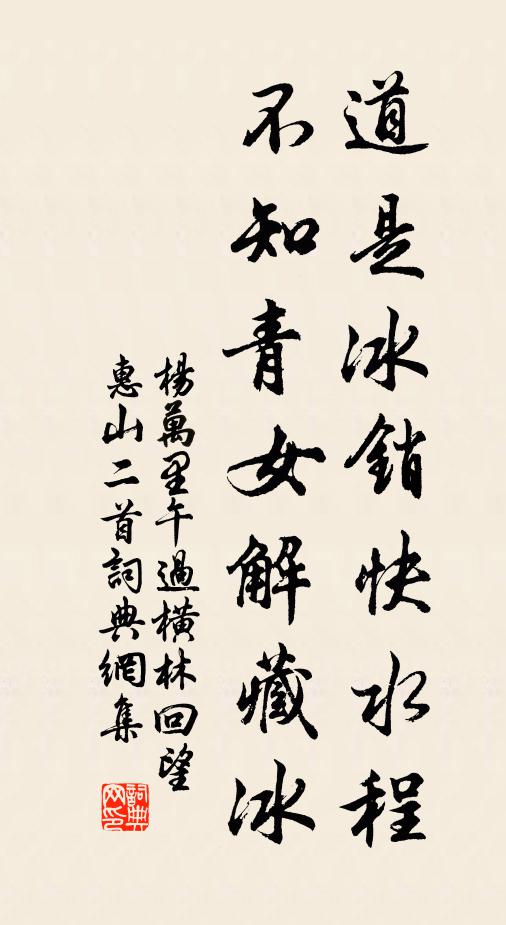 道是冰銷快水程
不知青女解藏冰
楊萬里午過橫林回望
惠山二首詞典網集
詞典
网印